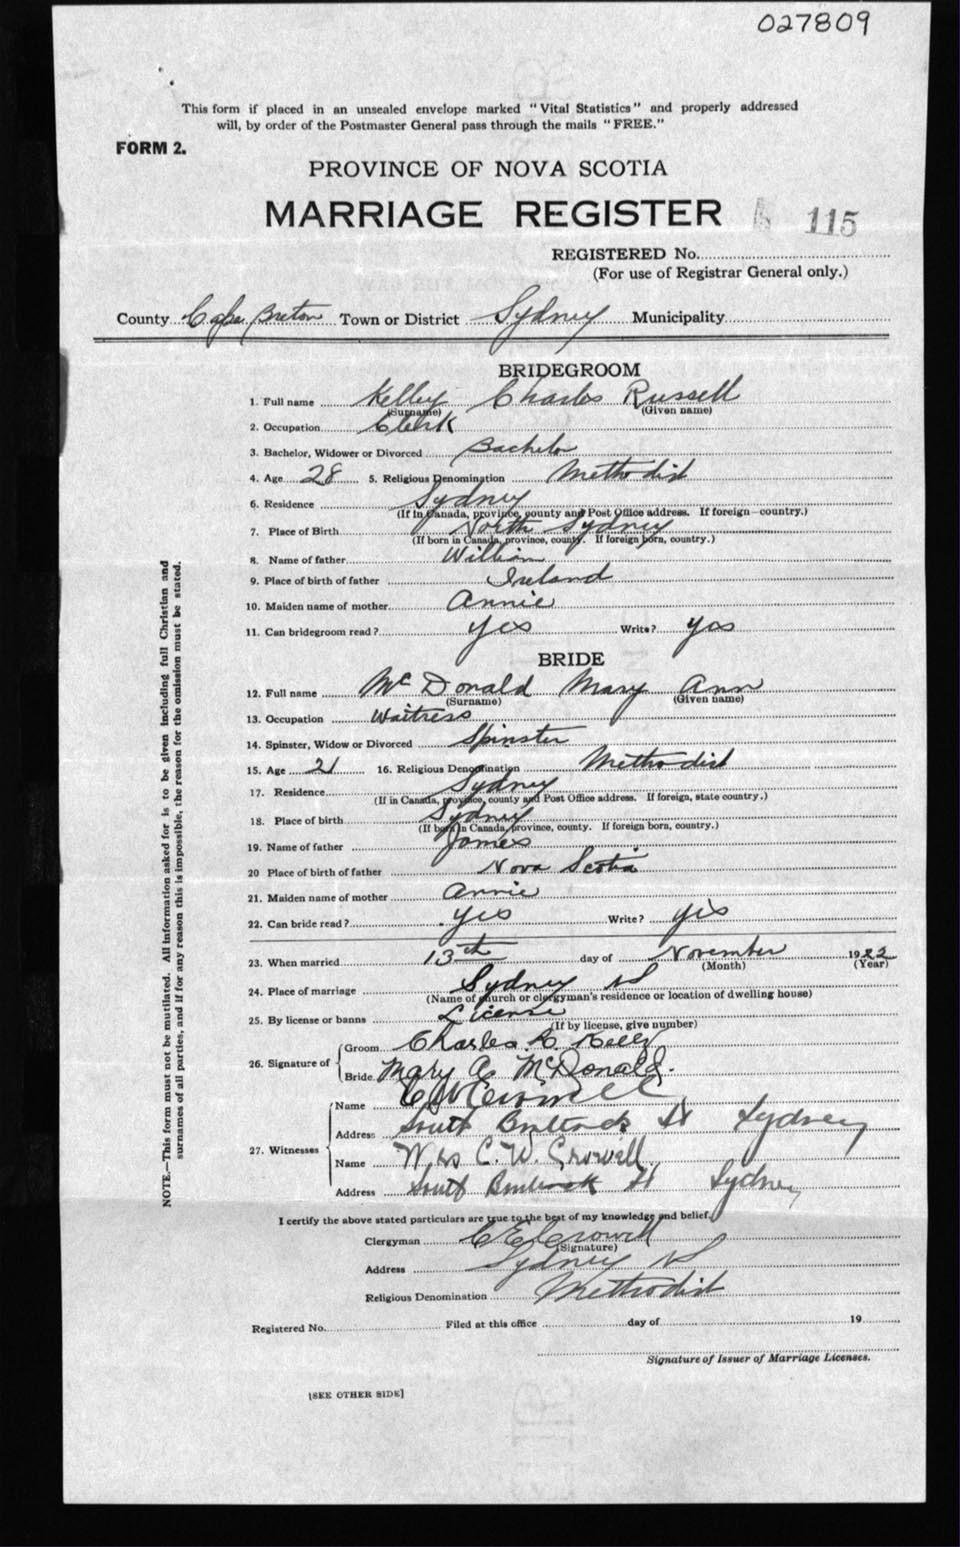 027809
This form if placed in an unsealed envelope marked "Vital Statistics" and properly addressed
will, by order of the Postmaster General pass through the mails "FREE."
FORM 2.
PROVINCE OF NOVA SCOTIA
MARRIAGE REGISTER 115
REGISTERED No.
(For use of Registrar General only.)
County Cape Breton Town or District Sydney Municipality
BRIDEGROOM
1. Full name Kelley Charles Russell
(Surname) (Given name)
2. Occupation Clerk
3. Bachelor, Widower or Divorced Bachelor
4. Age 28 5. Religious Denomination Methodist
6. Residence Sydney
(If in Canada, province, county and Post Office address. If foreign—country.)
7. Place of Birth North Sydney
(If born in Canada, province, county. If foreign born, country.)
8. Name of father William
9. Place of birth of father Ireland
10. Maiden name of mother Annie
11. Can bridegroom read? yes Write? yes
BRIDE
12. Full name McDonald Mary Ann
(Surname) (Given name)
13. Occupation Waitress
14. Spinster, Widow or Divorced Spinster
15. Age 21 16. Religious Denomination Methodist
17. Residence Sydney
(If in Canada, province, county and Post Office address. If foreign, state country.)
18. Place of birth Sydney
(If born in Canada, province, county. If foreign born, country.)
19. Name of father James
20 Place of birth of father Nova Scotia
21. Maiden name of mother Annie
22. Can bride read? yes Write? yes
23. When married 13th day of November 1922
(Month) (Year)
24. Place of marriage Sydney NS
(Name of church or clergyman's residence or location of dwelling house)
25. By license or banns License
(If by license, give number)
26. Signature of Groom Charles R. Kelly
Bride Mary A McDonald.
27. Witnesses Name Crowell
Address South St Sydney
Name Mrs C. W. Crowell
Address South St Sydney
I certify the above stated particulars are true to the best of my knowledge and belief.
Clergyman Crowell
(Signature)
Address Sydney NS
Religious Denomination Methodist
Registered No. Filed at this office day of 19
Signature of Issuer of Marriage Licenses.
[SEE OTHER SIDE]
NOTE.—This form must not be mutilated. All information asked for is to be given including full Christian and
surnames of all parties, and if for any reason this is impossible, the reason for the omission must be stated.